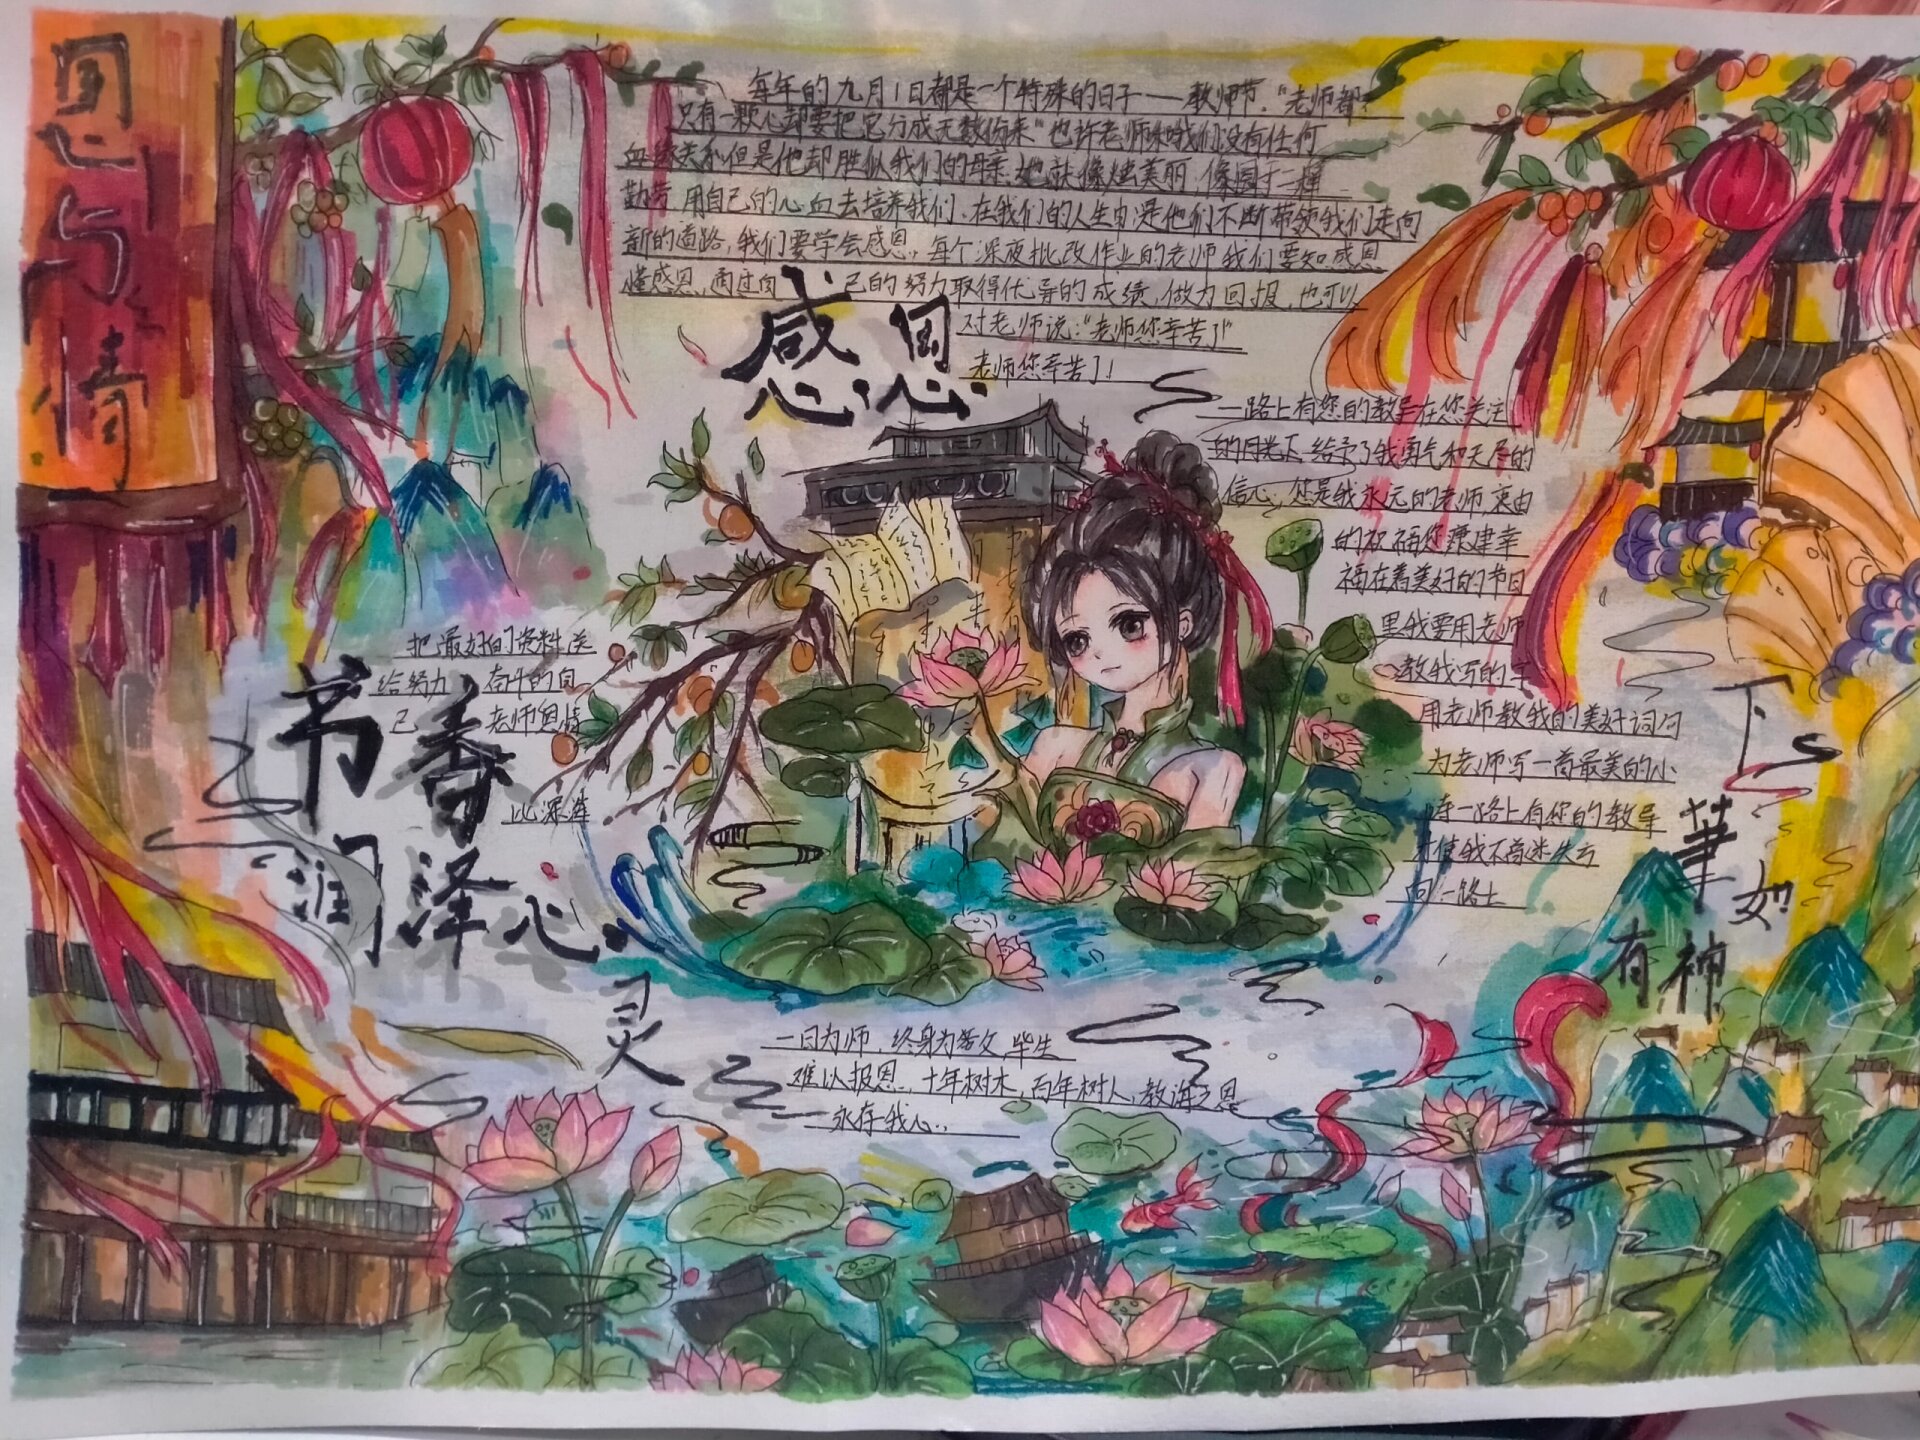 恩与情
每年的九月1日都是一个特殊的日子——教师节."老师都
只有一颗心却要把它分成无数份来"也许老师和我们没有任何
血缘关系但是他却胜似我们的母亲,她就像烛美丽,像园丁一样
勤劳 用自己的心血去培养我们、在我们的人生中是他们不断带领我们走向
新的道路,我们要学会感恩,每个深夜批改作业的老师我们要知感恩
懂感恩,通过向 己的努力取得优异的成绩,做为回报,也可以
对老师说:"老师您辛苦了"
老师您辛苦了!
感恩
一路上有您的教导在您关注
的目光下给予了我勇气和无尽的
信心,您是我永远的老师,衷由
的祝福您康建幸
福在着美好的节日
里我要用老师
教我写的字
用老师教我的美好词句
为老师写一首最美的小
诗一路上有你的教导
才使我不商迷失方
向一路上
把最好的资料送
给努力 奋斗的自
己 老师恩情
比深海
书香
润泽心灵
下
筆如
有神
一日为师,终身为父,毕生
难以报恩,十年树木,百年树人,教诲之恩
永存我心..